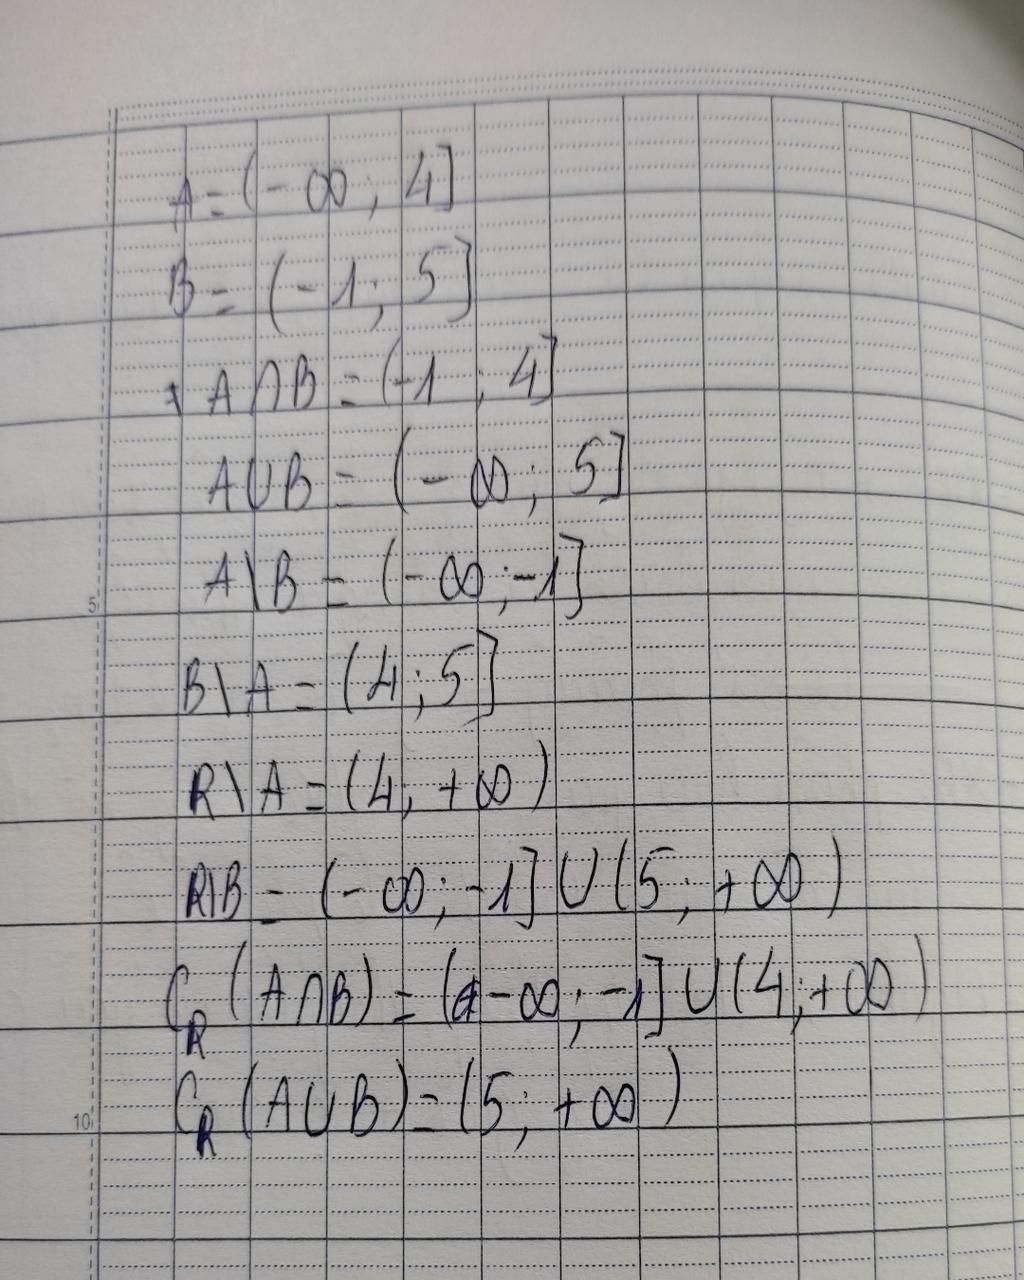 A = (-∞; 4]
B = (-1; 5]
A∩B = (-1; 4]
A∪B = (-∞; 5]
A\B = (-∞; -1]
5
B\A = (4; 5]
R\A = (4; +∞)
R\B = (-∞; -1] ∪ (5; +∞)
C_R (A∩B) = (-∞; -1] ∪ (4; +∞)
C_R (A∪B) = (5; +∞)
10